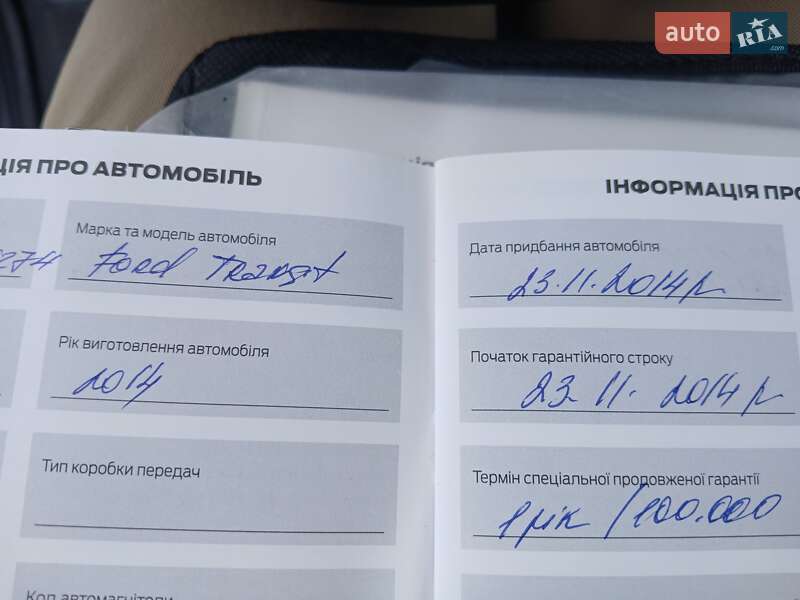 auto RIA .com
ЦІЯ ПРО АВТОМОБІЛЬ
274
Марка та модель автомобіля
Ford Transit
Рік виготовлення автомобіля
2014
Тип коробки передач
Код автомагнітоли
ІНФОРМАЦІЯ ПРО
Дата придбання автомобіля
23.11.2014 р
Початок гарантійного строку
23. 11. 2014 р
Термін спеціальної продовженої гарантії
1 рік /100.000